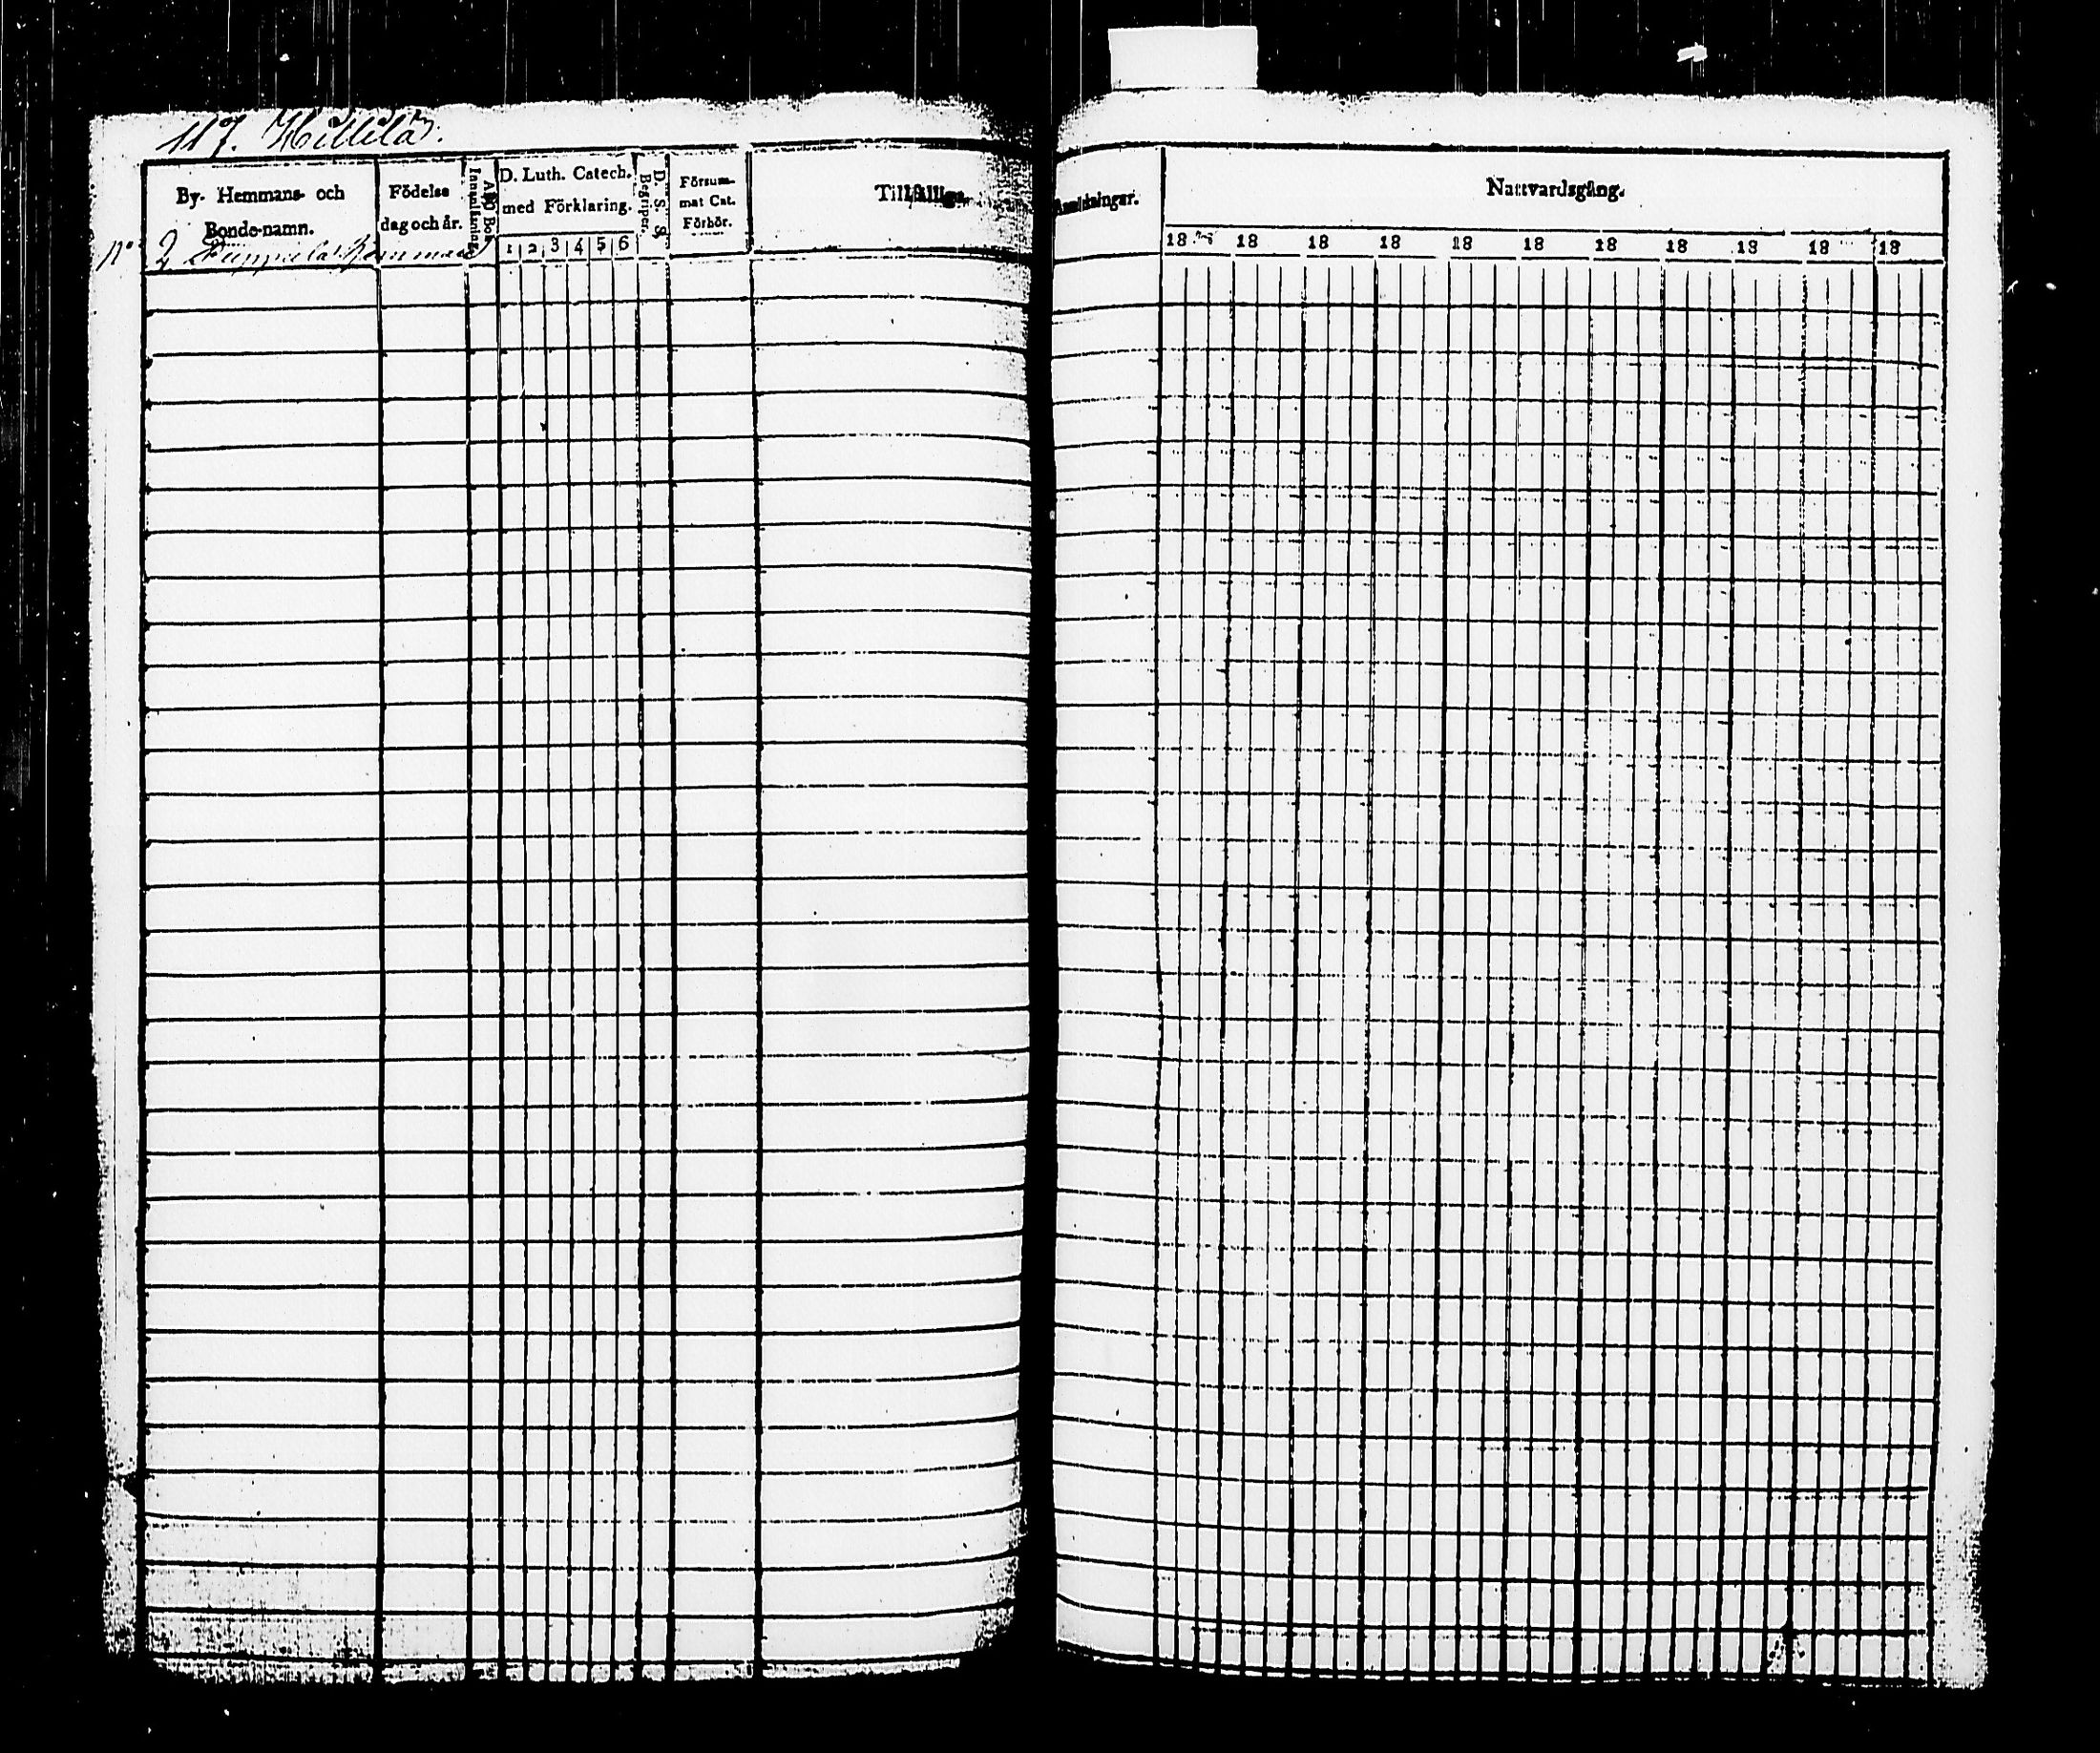 117. Hillilä
By- Hemmans- och Bonde-namn.
Födelse dag och år.
Innanläsning.
D. Luth. Catech. med Förklaring.
1 2 3 4 5 6
D. S. S. Begriper.
Försum- mat Cat. Förhör.
Tillfälliga
Anmärkningar.
Nattvardsgång.
18 18 18 18 18 18 18 18 18 18 18
No 2